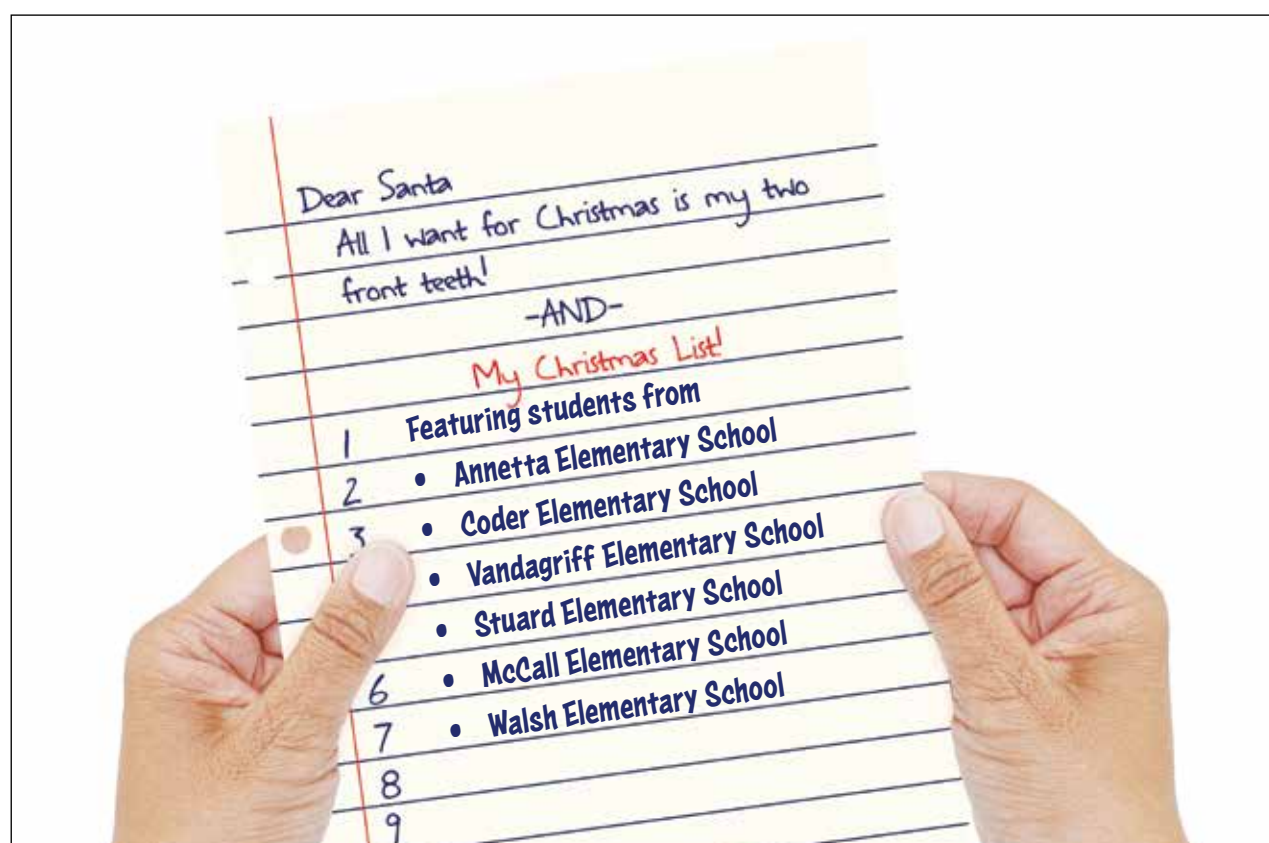 Dear Santa
All I want for Christmas is my two
front teeth!
-AND-
My Christmas List!
1 Featuring students from
2 • Annetta Elementary School
3 • Coder Elementary School
• Vandagriff Elementary School
• Stuard Elementary School
6 • McCall Elementary School
7 • Walsh Elementary School
8
9